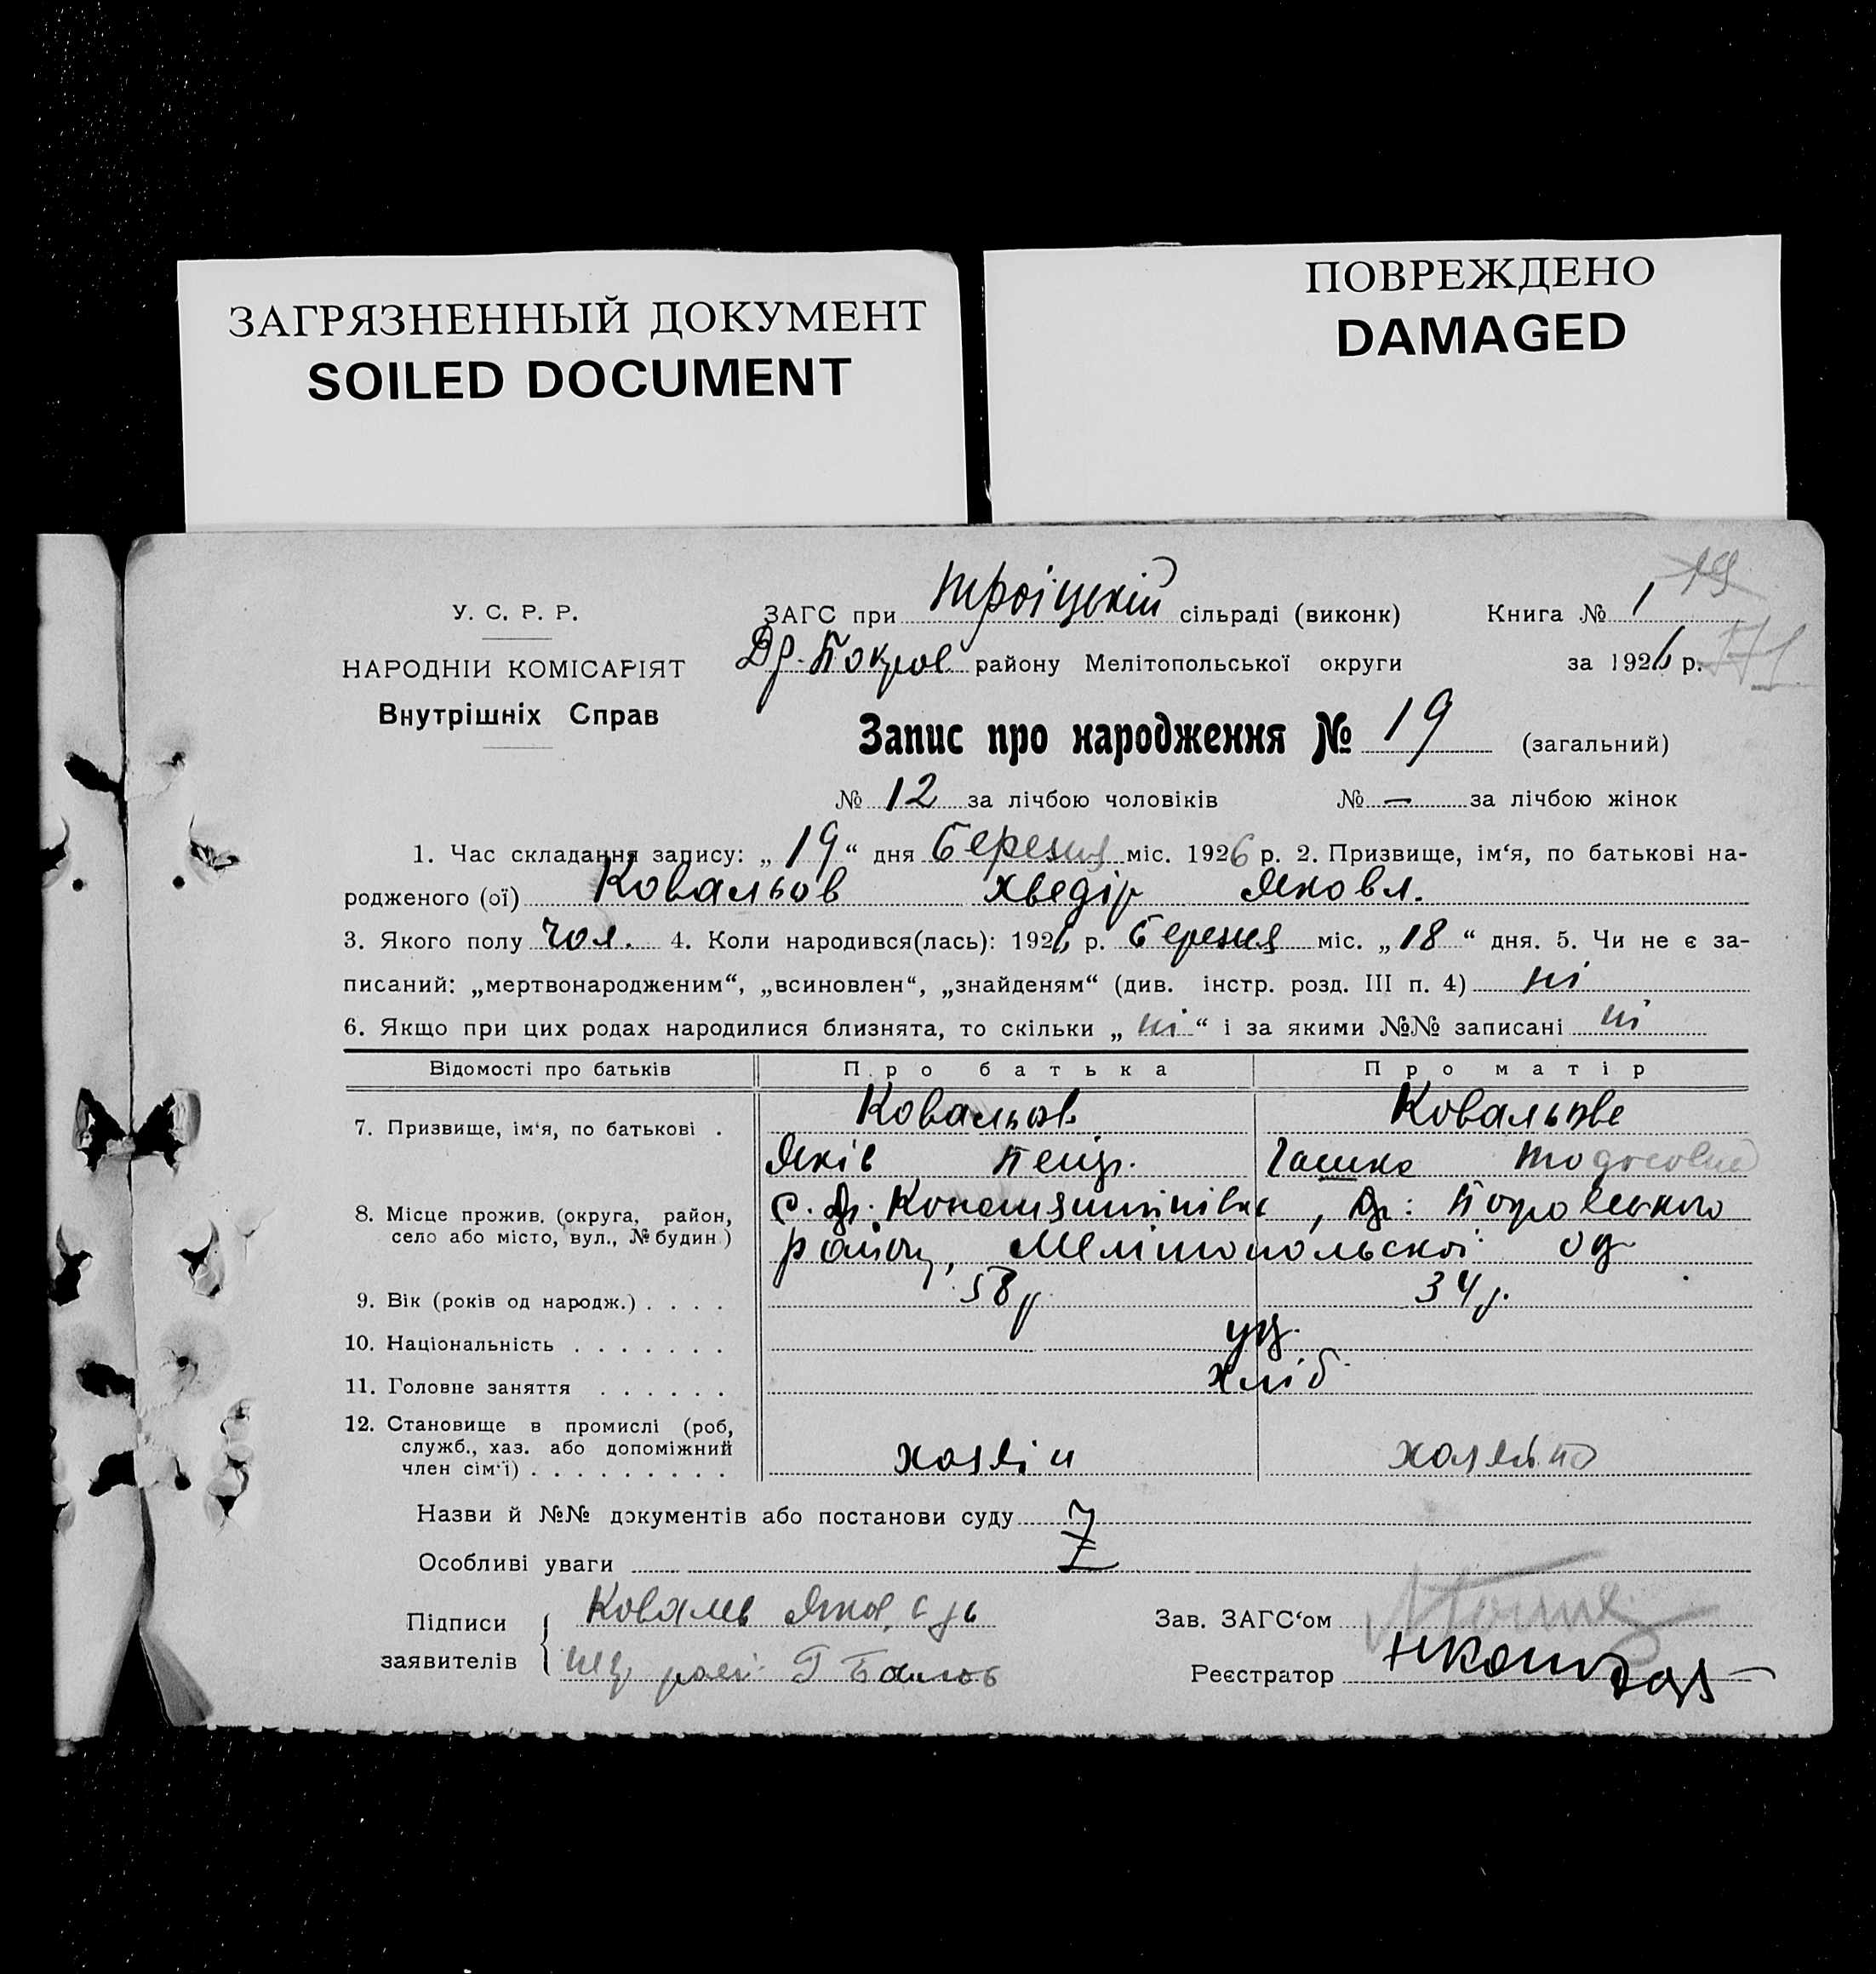 ЗАГРЯЗНЕННЫЙ ДОКУМЕНТ
SOILED DOCUMENT
ПОВРЕЖДЕНО
DAMAGED
19
У. С. Р. Р.
НАРОДНІЙ КОМІСАРІЯТ
Внутрішніх Справ
ЗАГС при Троіцькій сільраді (виконк) Книга № 1
Др. Покров району Мелітопольської округи за 1926 р.
171
Запис про народження № 19 (загальний)
№ 12 за лічбою чоловіків № — за лічбою жінок
1. Час складання запису: „19“ дня Березня міс. 1926 р. 2. Призвище, ім‘я, по батькові на-
родженого (ої) Ковальов Хведір Яковл.
3. Якого полу чол. 4. Коли народився(лась): 1926 р. Березня міс. „18“ дня. 5. Чи не є за-
писаний: „мертвонародженим“, „всиновлен“, „знайденям“ (див. інстр. розд. III п. 4) ні
6. Якщо при цих родах народилися близнята, то скільки „ні“ і за якими №№ записані ні
Відомості про батьків Про батька Про матір
7. Призвище, ім‘я, по батькові . Ковальов Ковальова
Яків Петр. Гашка Тодосовна
8. Місце прожив. (округа, район,
село або місто, вул., № будин.)
с. Др. Констянтинівка, Др: Покровського
району, Мелітопольскої ок
9. Вік (років од народж.) . . . . 38 р. 34 р.
10. Національність . . . . . . . ук.
11. Головне заняття . . . . . . хліб.
12. Становище в промислі (роб,
служб., хаз. або допоміжний
член сім‘ї) . . . . . . . . . хазяїн хазяйка
Назви й №№ документів або постанови суду
Особливі уваги
Z
Підписи
заявителів
Коваль Яков
Г
Зав. ЗАГС‘ом
Реєстратор